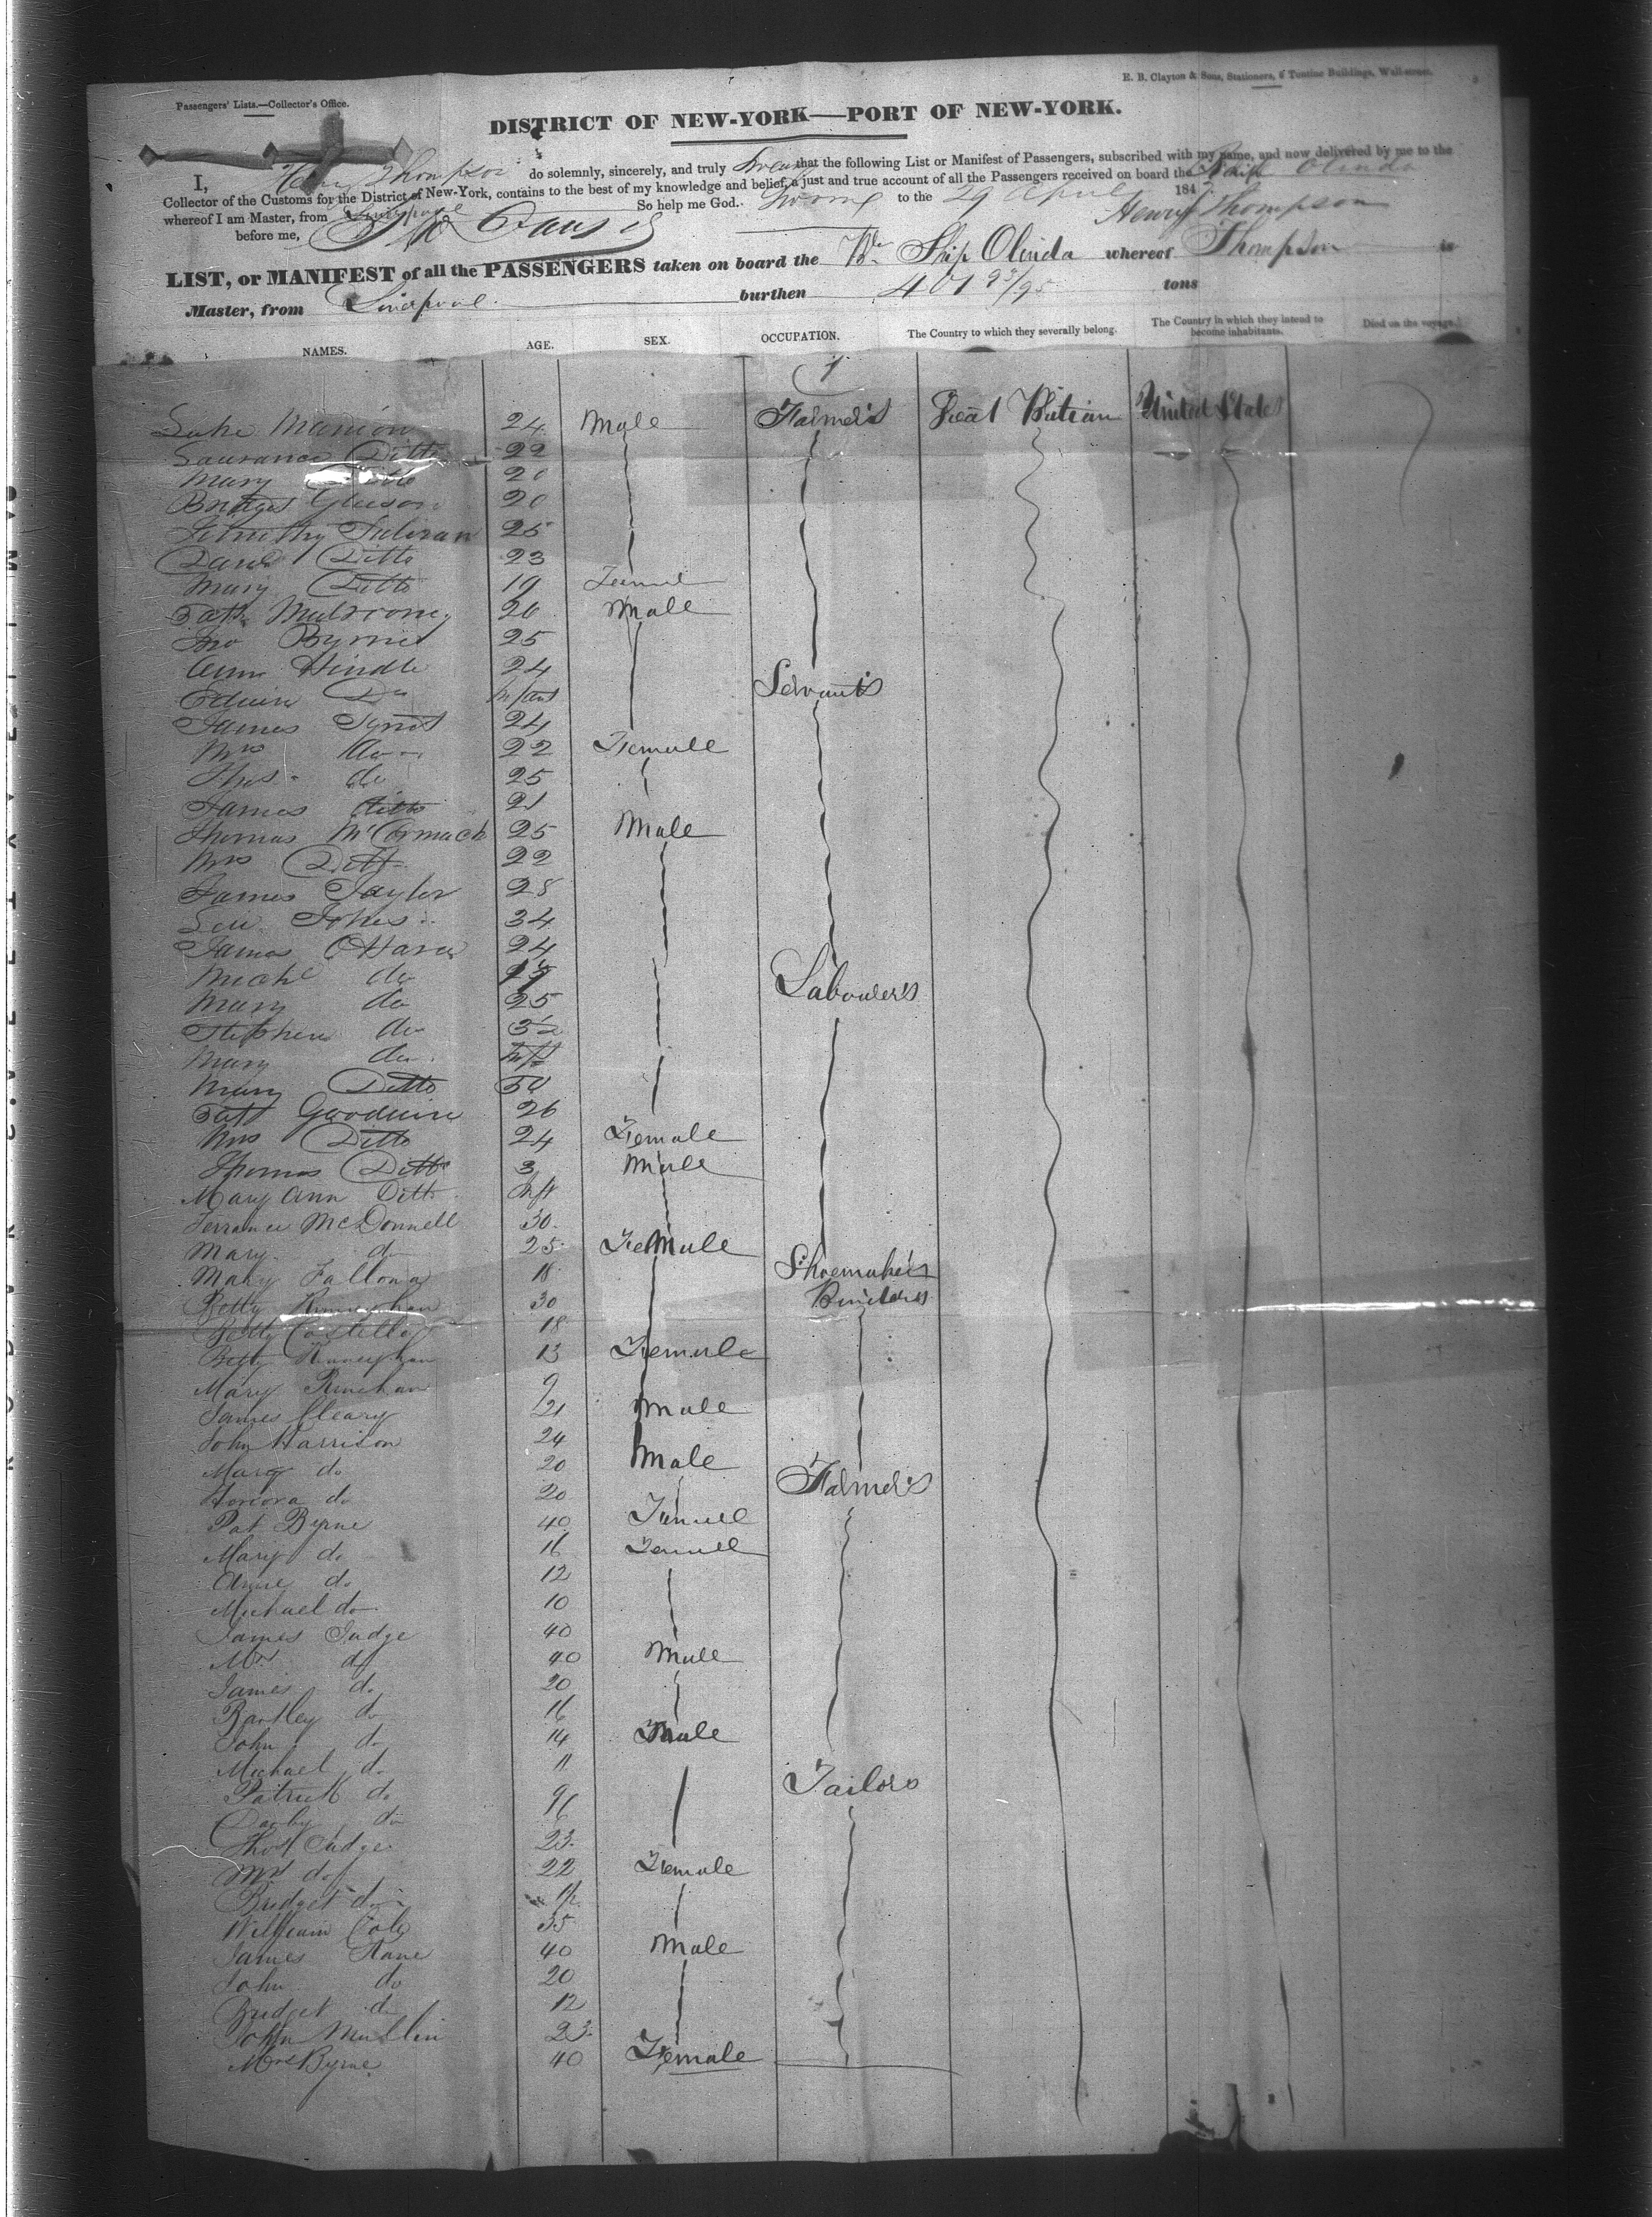 E. B. Clayton & Sons, Stationers, 6 Tontine Buildings, Wall-street.
Passengers' Lists.—Collector's Office.
DISTRICT OF NEW-YORK—PORT OF NEW-YORK.
I, Henry Thompson do solemnly, sincerely, and truly Swear that the following List or Manifest of Passengers, subscribed with my name, and now delivered by me to the
Collector of the Customs for the District of New-York, contains to the best of my knowledge and belief, a just and true account of all the Passengers received on board the Ship Olinda
whereof I am Master, from Liverpool So help me God. Sworn to the 29 April 184
before me, Henry Thompson
LIST, or MANIFEST of all the PASSENGERS taken on board the Br Ship Olinda whereof Thompson is
Master, from Liverpool burthen 401 93/95 tons
NAMES. AGE. SEX. OCCUPATION. The Country to which they severally belong. The Country in which they intend to become inhabitants. Died on the voyage.
Luke Manion 24 Male Farmers Great Britian United States
Laurance Ditto 22
Mary Ditto 20
Bridget Gleeson 20
Timothy Sulivan 25
David Ditto 23
Mary Ditto 19
Patk Mulrooney 20 Male
Jno Byrnes 25
Ann Hindle 24
Edwin Do Infant Servants
James Synot 24
Mrs do 22 Female
Thos do 25
James Ditto 21
Thomas McCormack 25 Male
Mrs Ditto 22
James Taylor 28
Jones 34
James OHara 24
Michl do
Mary do 25 Labourers
Stephen do
Mary do Inft
Mary Ditto 50
Patt Goodwin 26
Mrs Ditto 24 Female
Thomas Ditto 3 Male
Mary Ann Ditto Inft
Terrance McDonnell 30
Mary do 25 Female
Mary Fallona 18 Shoemakers
Betty 30
Betty Costello 18
Betty 13 Female
Mary 9
James Cleary 21 Male
John Harrison 24
Mary do 20 Male
Honora do 20 Farmers
Pat Byrne 40
Mary do 16
Anne do 12
Michael do 10
James Judge 40
Mrs do 40 Male
James do 20
Bartley do 16
John do 14 Male
Michael do 11
Patrick do 9 Tailors
Darby do 6
Thos Judge 23
Mrs do 22 Female
Bridget do
William Cole 35
James Kane 40 Male
John do 20
Bridget do 12
John Mullin 23
Mrs Byrne 40 Female